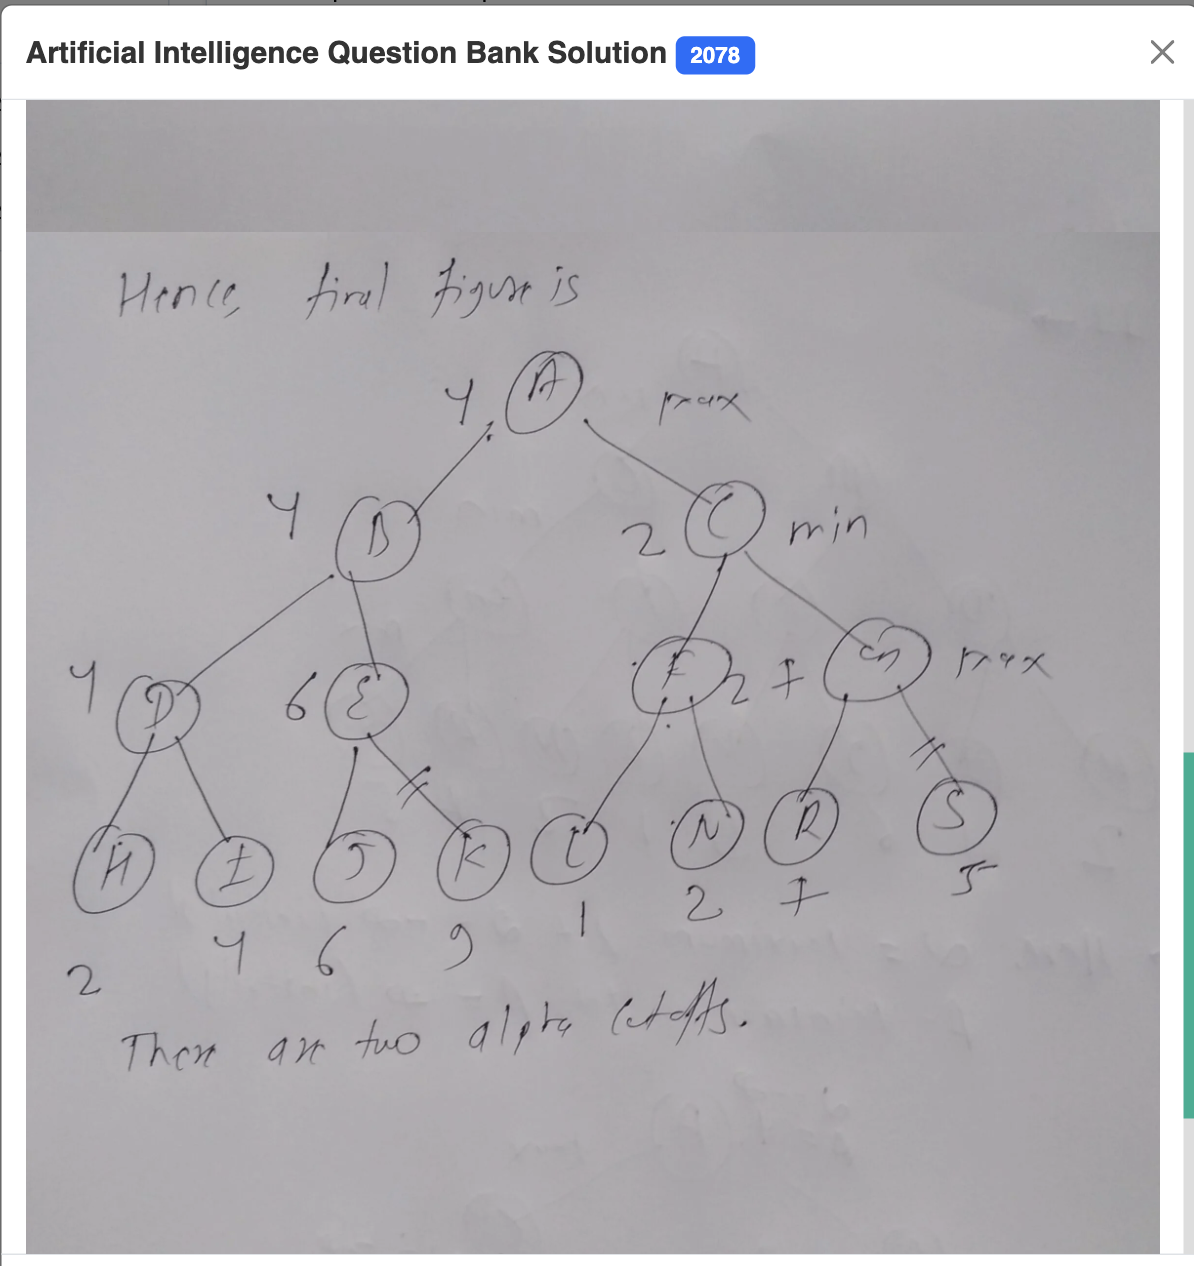 Artificial Intelligence Question Bank Solution 2078
Hence, final figure is
4 A max
4 B 2 C min
4 D 6 E F 2 7 G max
H I J K L N R S
2 4 6 9 1 2 7 5
There are two alpha cutoffs.